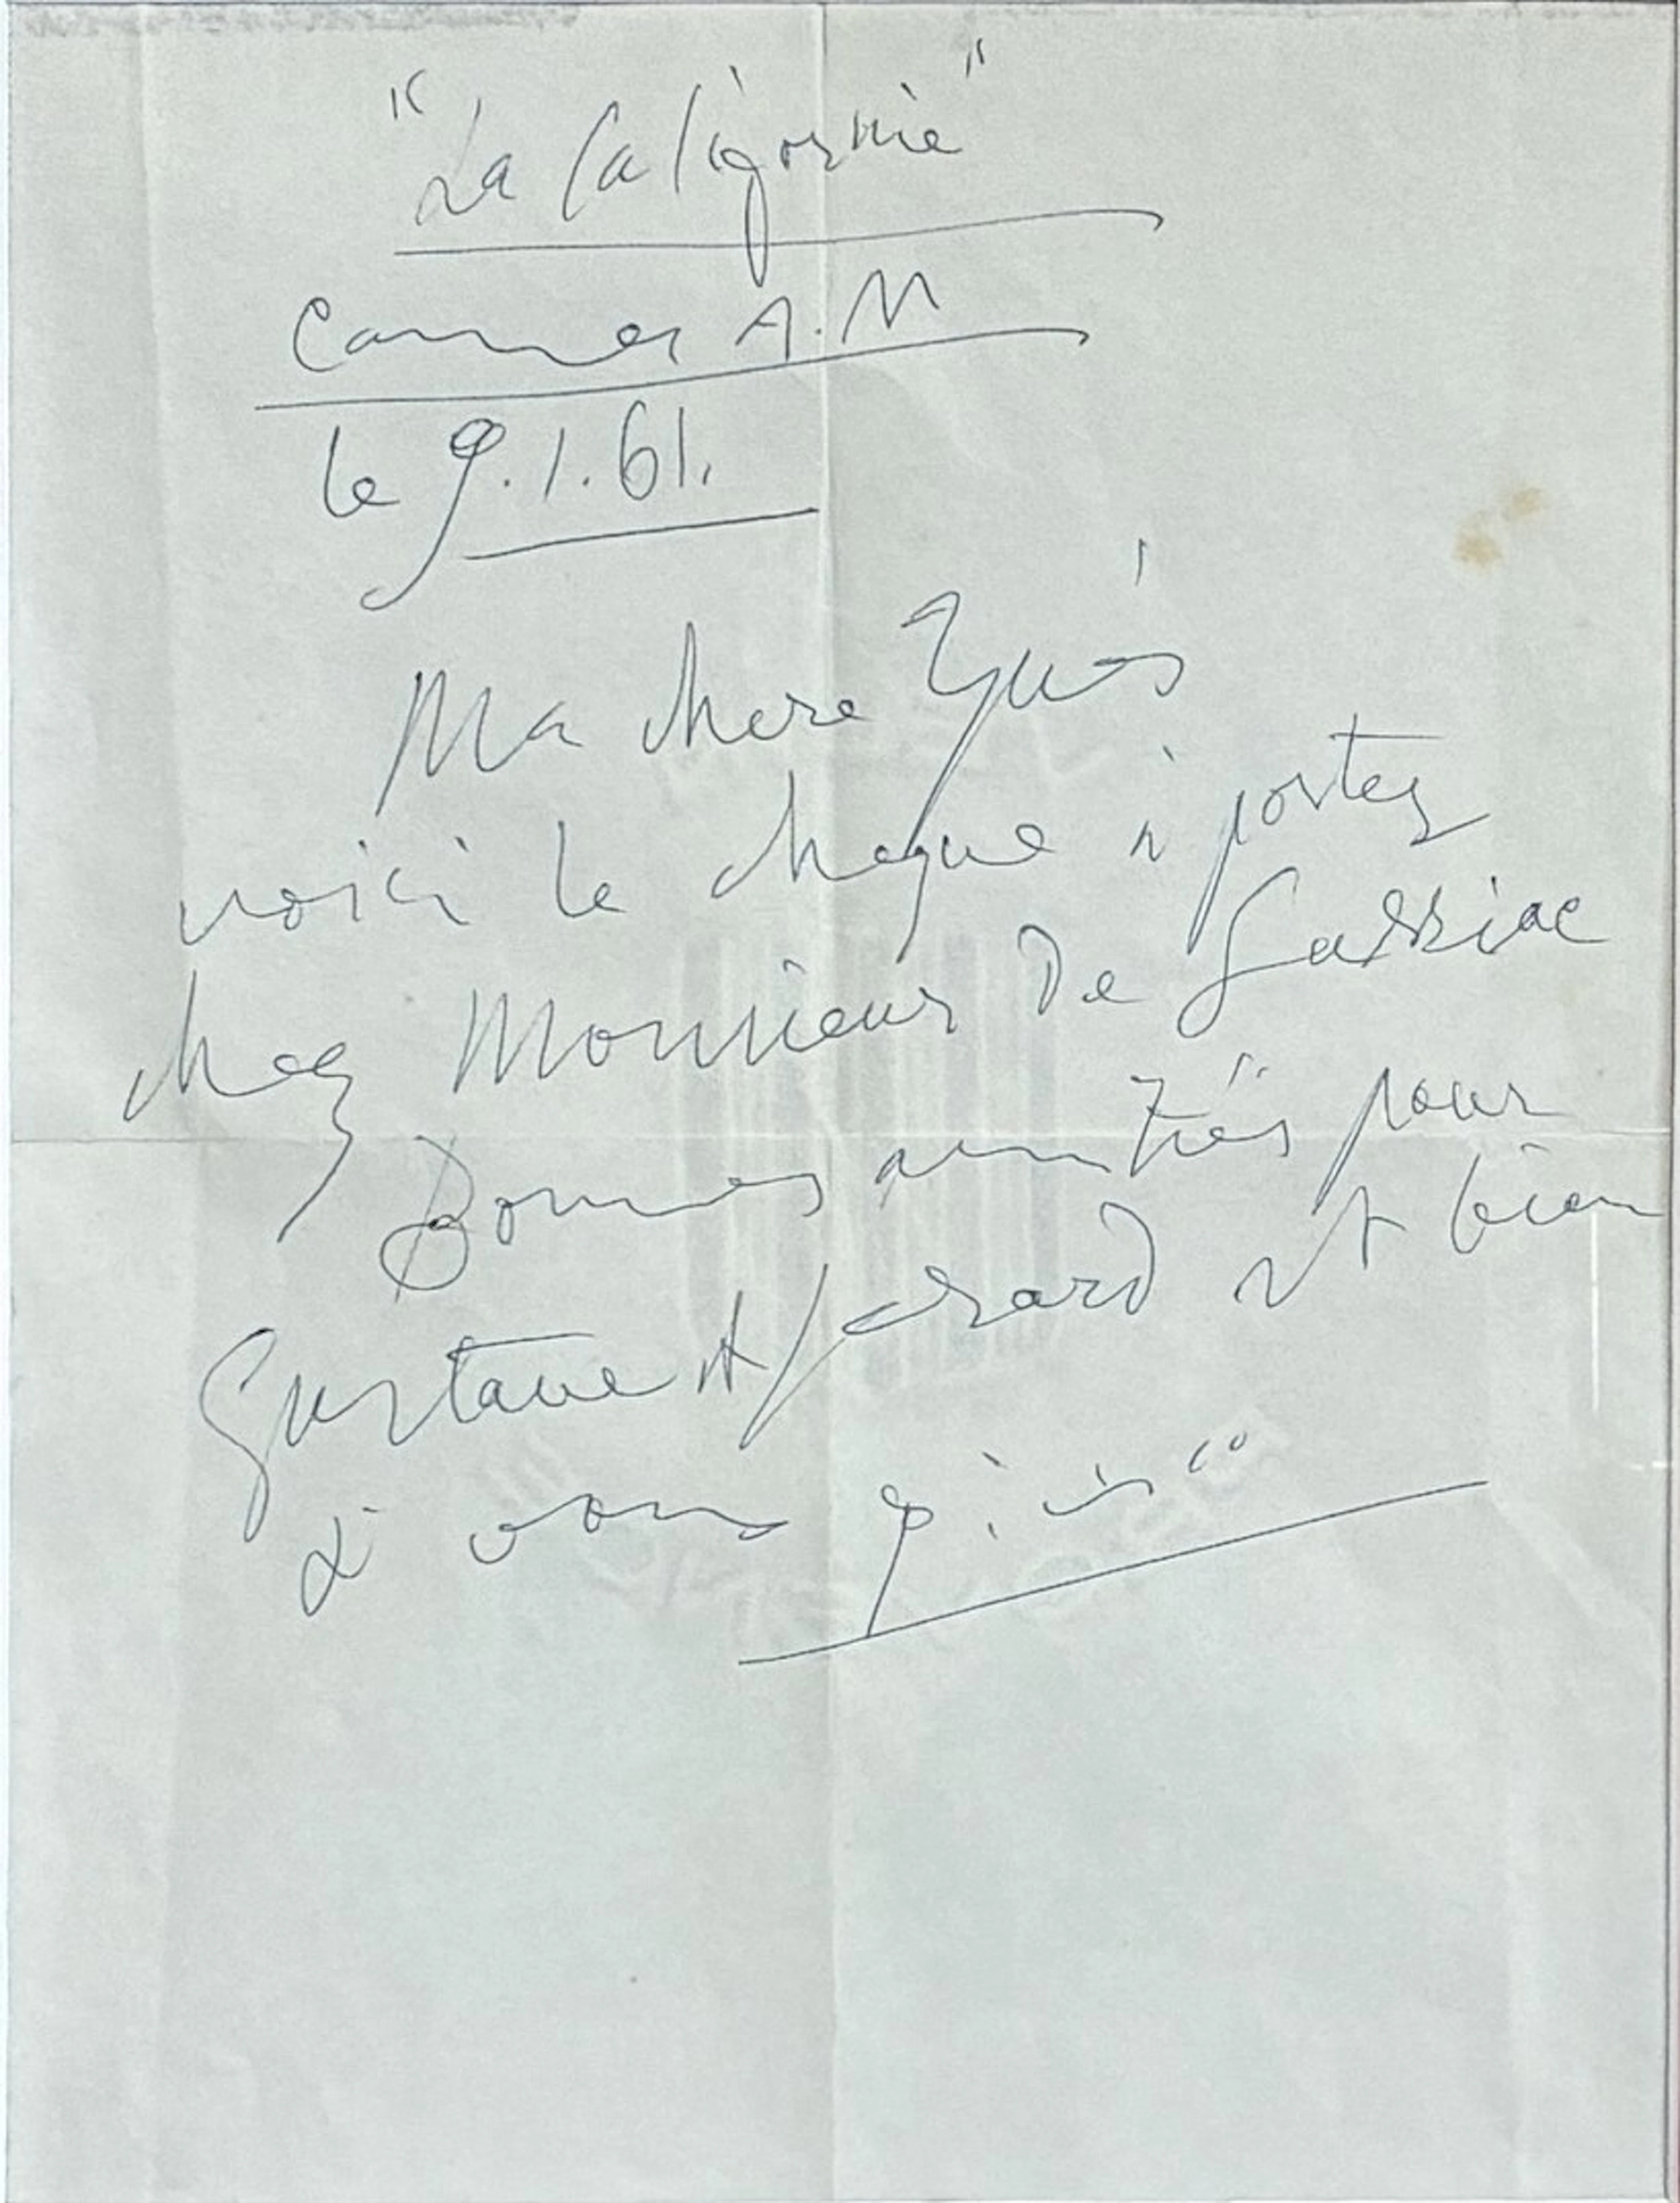 "La Californie"
Cannes A.M
le 9.1.61.
Ma chere Ynès
voici le cheque a porter
chez Monsieur De Sarriac
Bonnes amitiés pour
Gustave et Gerard et bien
a vous